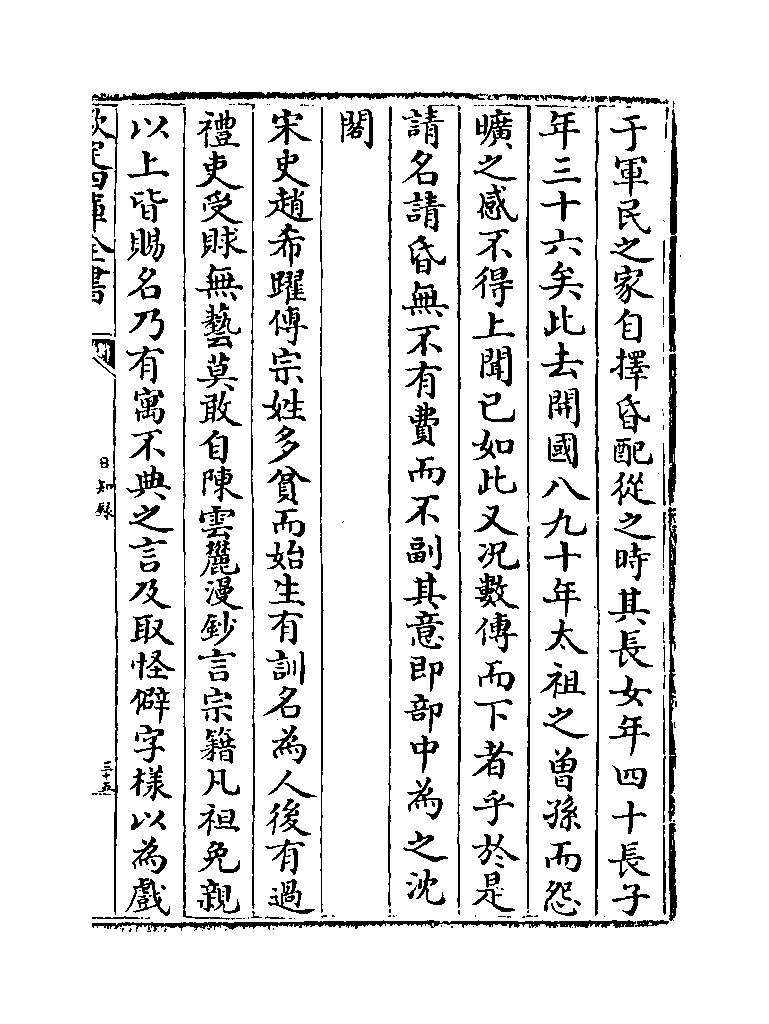 于軍民之家自擇昏配從之時其長女年四十長子
年三十六矣此去開國八九十年太祖之曾孫而怨
曠之感不得上聞已如此又况數傳而下者乎於是
請名請昏無不有費而不副其意即部中為之沈
閣
宋史趙希躍傳宗姓多貧而始生有訓名為人後有過
禮吏受賕無藝莫敢自陳雲麓漫鈔言宗籍凡祖免親
以上皆賜名乃有寓不典之言及取怪僻字様以為戲
欽定四庫全書
日知録
三十五